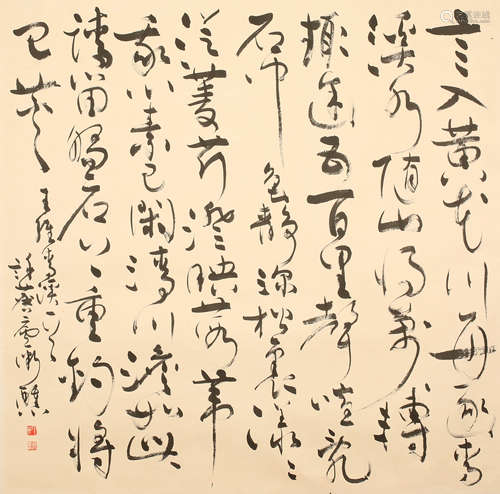 言入黄花川每逐青
溪水随山将万轉
趣途无百里聲喧乱
石中色静深松裏漾漾
泛菱荇澄澄映葭苇
我心素已闲清川澹如此
请留盘石上垂钓将
已矣
王维青溪一首